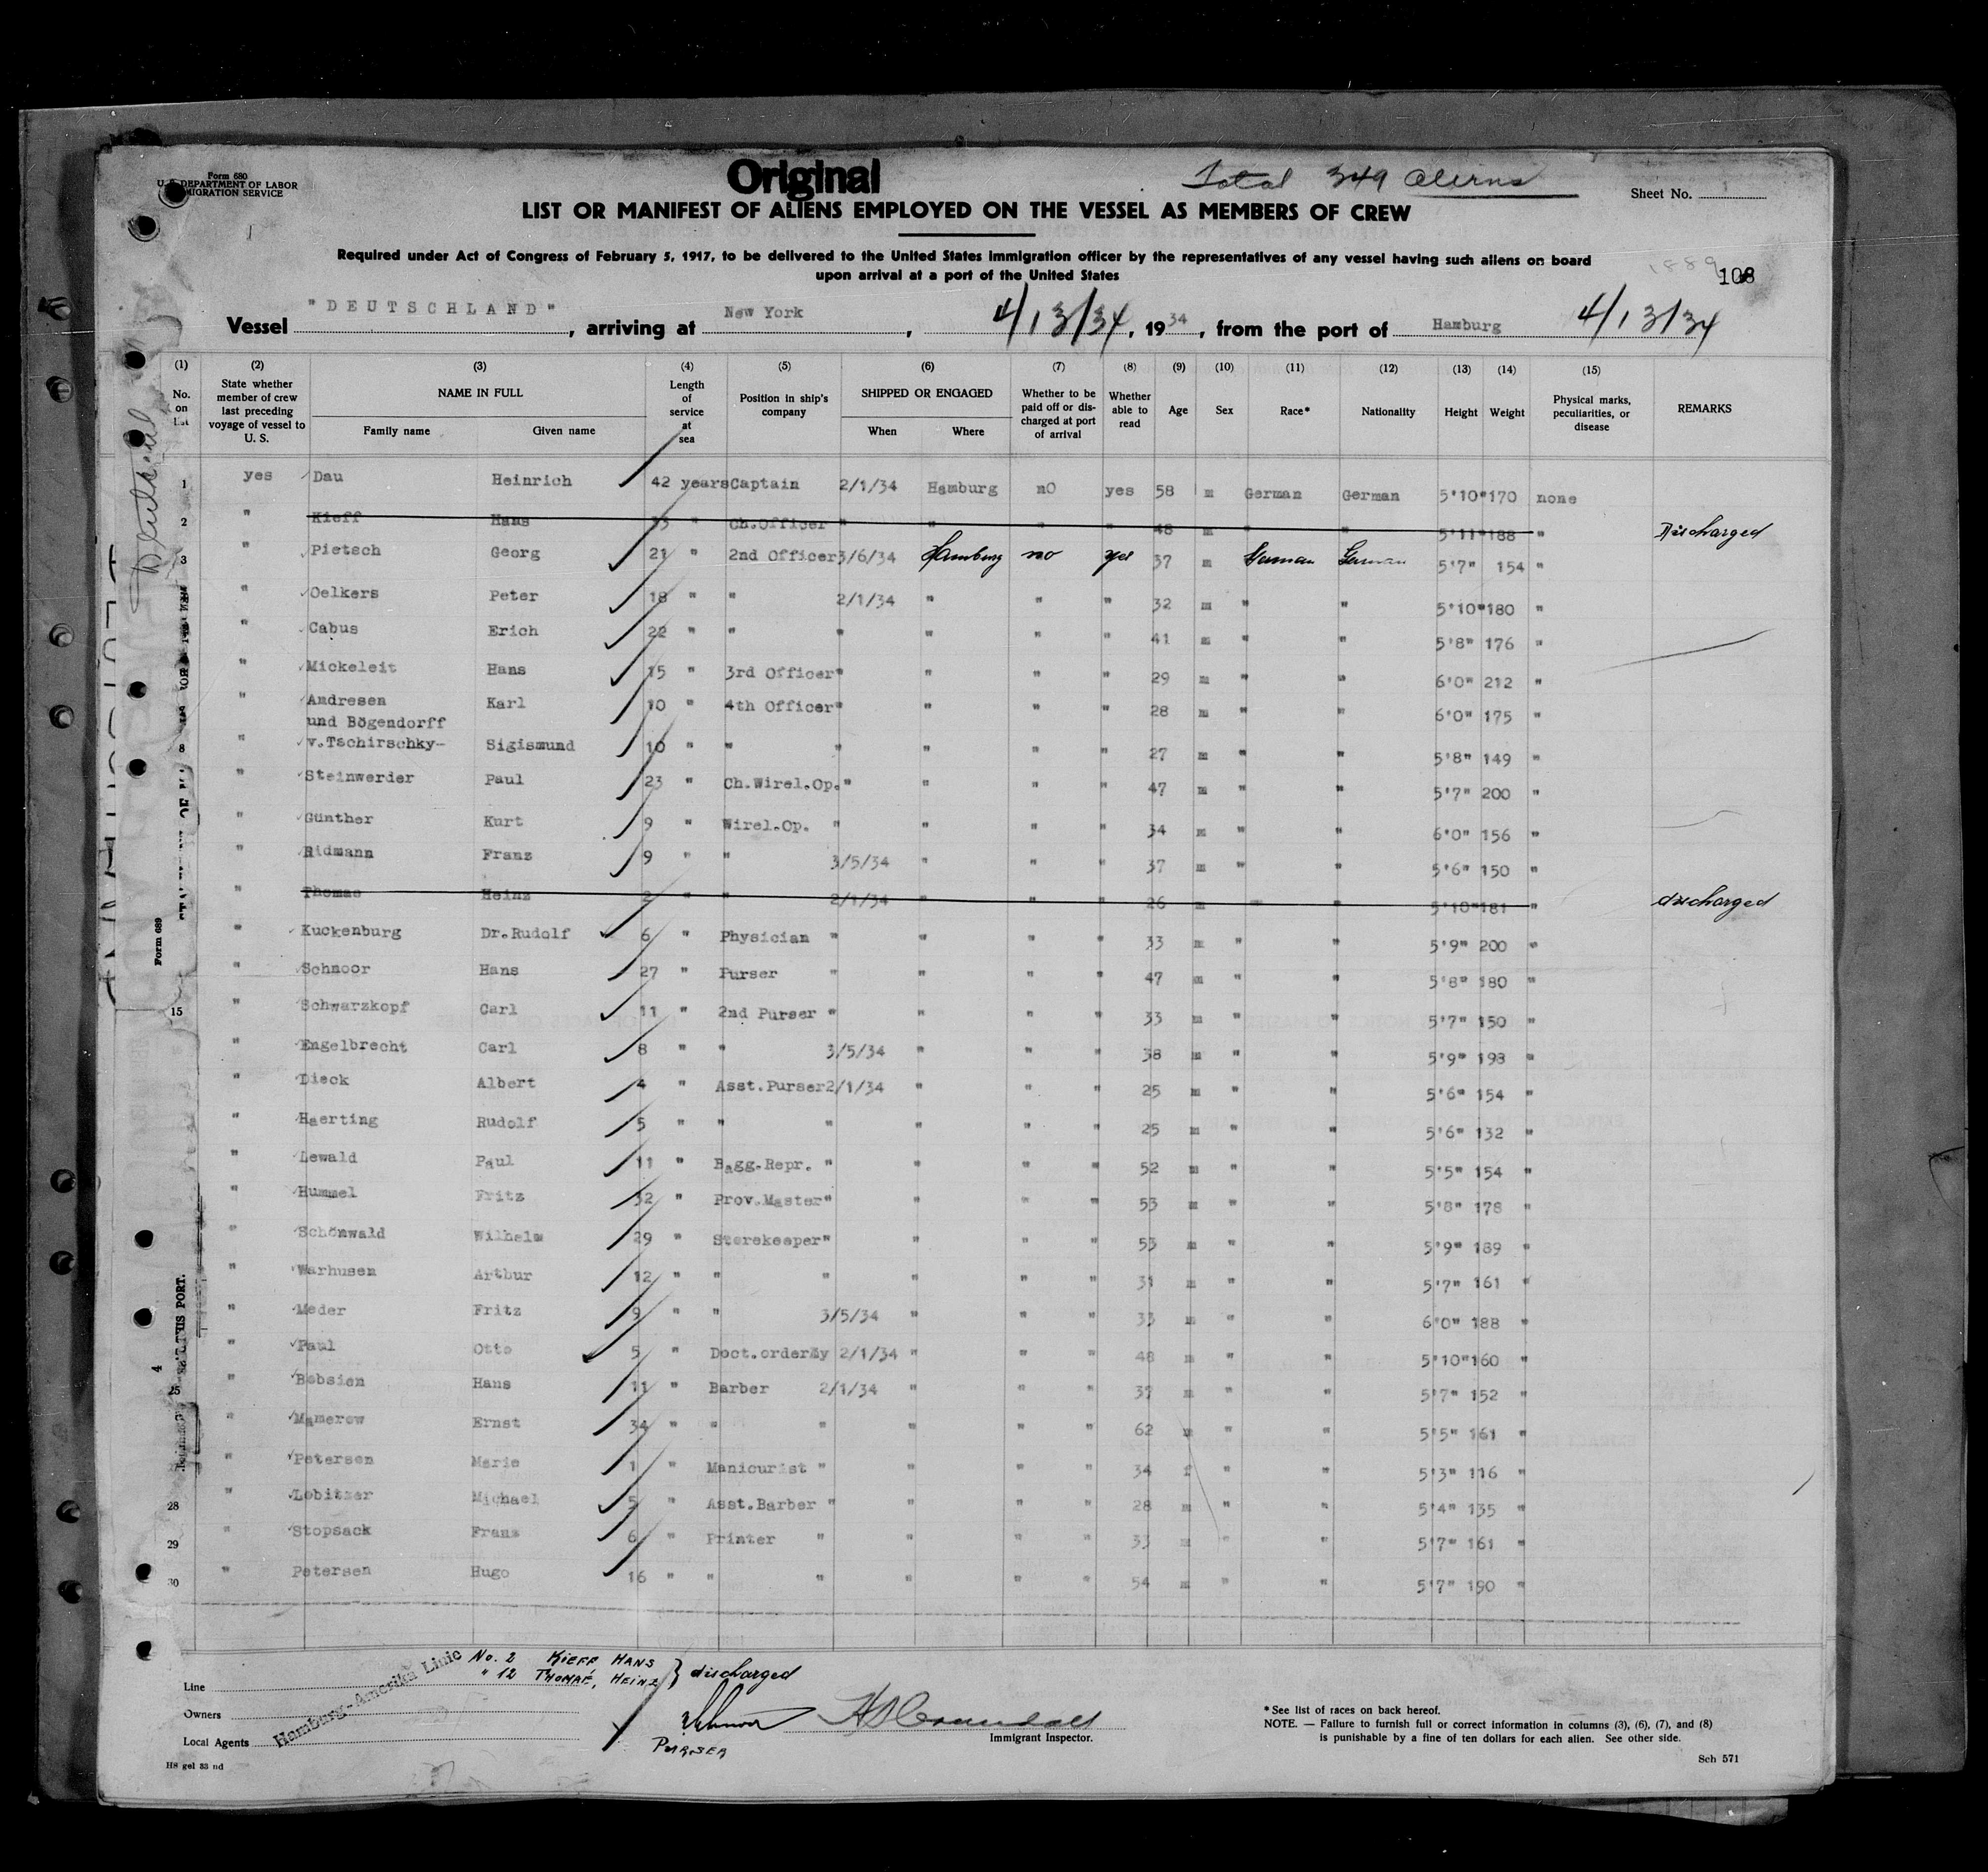 Form 680
U. S. DEPARTMENT OF LABOR
IMMIGRATION SERVICE
Original
Total 349 Aliens
Sheet No. 1
LIST OR MANIFEST OF ALIENS EMPLOYED ON THE VESSEL AS MEMBERS OF CREW
1
Required under Act of Congress of February 5, 1917, to be delivered to the United States Immigration officer by the representatives of any vessel having such aliens on board
upon arrival at a port of the United States
108
Vessel "DEUTSCHLAND", arriving at New York, 4/13/34, 1934, from the port of Hamburg 4/13/34
(1) (2) (3) (4) (5) (6) (7) (8) (9) (10) (11) (12) (13) (14) (15)
No. on list
State whether member of crew last preceding voyage of vessel to U. S.
NAME IN FULL
Family name Given name
Length of service at sea
Position in ship's company
SHIPPED OR ENGAGED
When Where
Whether to be paid off or discharged at port of arrival
Whether able to read
Age Sex Race* Nationality Height Weight
Physical marks, peculiarities, or disease
REMARKS
1 yes Dau Heinrich 42 years Captain 2/1/34 Hamburg no yes 58 m German German 5'10" 170 none
2 " Kieff Hans 33 " Ch.Officer " " " " 48 m " " 5'11" 188 " Discharged
3 " Pietsch Georg 21 " 2nd Officer 3/6/34 Hamburg no yes 37 m German German 5'7" 154 "
" Oelkers Peter 18 " " 2/1/34 " " " 32 m " " 5'10" 180 "
" Cabus Erich 22 " " " " " " 41 m " " 5'8" 176 "
" Mickeleit Hans 15 " 3rd Officer " " " " 29 m " " 6'0" 212 "
" Andresen Karl 10 " 4th Officer " " " " 28 m " " 6'0" 175 "
und Bögendorff
8 " v.Tschirschky- Sigismund 10 " " " " " " 27 m " " 5'8" 149 "
" Steinwerder Paul 23 " Ch.Wirel.Op. " " " " 47 m " " 5'7" 200 "
" Günther Kurt 9 " Wirel.Op. " " " " 34 m " " 6'0" 156 "
" Ridmann Franz 9 " " 3/5/34 " " " 37 m " " 5'6" 150 "
" Thomae Heinz 2 " " 2/1/34 " " " 26 m " " 5'10" 181 " discharged
" Kuckenburg Dr.Rudolf 6 " Physician " " " " 33 m " " 5'9" 200 "
" Schnoor Hans 27 " Purser " " " " 47 m " " 5'8" 180 "
15 " Schwarzkopf Carl 11 " 2nd Purser " " " " 33 m " " 5'7" 150 "
" Engelbrecht Carl 8 " " 3/5/34 " " " 38 m " " 5'9" 198 "
" Dieck Albert 4 " Asst.Purser 2/1/34 " " " 25 m " " 5'6" 154 "
" Haerting Rudolf 5 " " " " " " 25 m " " 5'6" 132 "
" Lewald Paul 11 " Bagg.Repr. " " " " 52 m " " 5'5" 154 "
" Hummel Fritz 32 " Prov.Master " " " " 53 m " " 5'8" 178 "
" Schönwald Wilhelm 29 " Storekeeper " " " " 53 m " " 5'9" 189 "
" Warhusen Arthur 12 " " " " " " 31 m " " 5'7" 161 "
" Meder Fritz 9 " " 3/5/34 " " " 33 m " " 6'0" 188 "
" Paul Otto 5 " Doct.orderly 2/1/34 " " " 48 m " " 5'10" 160 "
25 " Bobsien Hans 11 " Barber 2/1/34 " " " 37 m " " 5'7" 152 "
" Mamerow Ernst 34 " " " " " " 62 m " " 5'5" 161 "
" Petersen Marie 1 " Manicurist " " " " 34 f " " 5'3" 116 "
28 " Lobitzer Michael 5 " Asst.Barber " " " " 28 m " " 5'4" 135 "
29 " Stopsack Franz 6 " Printer " " " " 33 m " " 5'7" 161 "
30 " Petersen Hugo 16 " " " " " " 54 m " " 5'7" 190 "
Form 689
4
THIS PORT.
No. 2 KIEFF HANS
" 12 THOMAE, HEINZ } discharged
Line
Owners
Local Agents
Hamburg-Amerika Linie
PURSER
Immigrant Inspector.
* See list of races on back hereof.
NOTE. — Failure to furnish full or correct information in columns (3), (6), (7), and (8)
is punishable by a fine of ten dollars for each alien. See other side.
H8 gel 33 nd
Sch 571